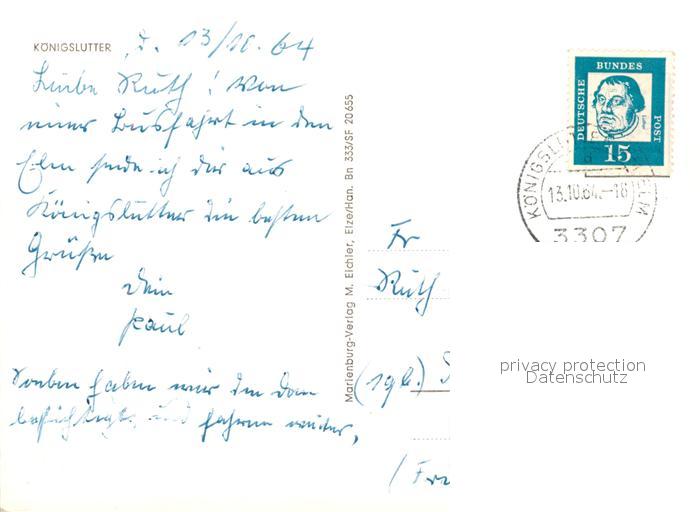 KÖNIGSLUTTER , d. 13/10. 64
Liebe Ruth! Von
einer Busfahrt in den
Elm sende ich dir aus
Königslutter die besten
Grüße
Dein
Paul
Soeben haben wir den Dom
besichtigt und fahren weiter,
Marienburg-Verlag M. Eichler, Elze/Han. Bn 333/SF 20655
DEUTSCHE BUNDES POST
15
KÖNIGSLUTTER ELM
13.10.64.-18
3307
Fr
Ruth
privacy protection
Datenschutz